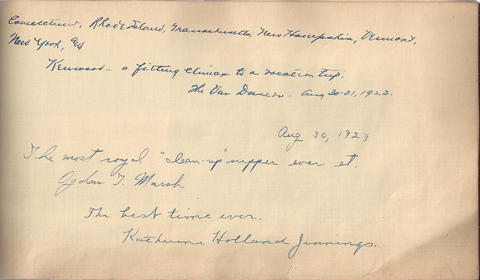 Connecticut, Rhode Island, Massachusetts, New Hampshire, Vermont,
New York, and
Kenwood - a fitting climax to a vacation trip.
The Van Dusens - Aug 30-31, 1923.
Aug 30, 1923
The most royal "clean-up" supper ever et.
T. Marsh
The best time ever.
Katherine Holland Jennings.